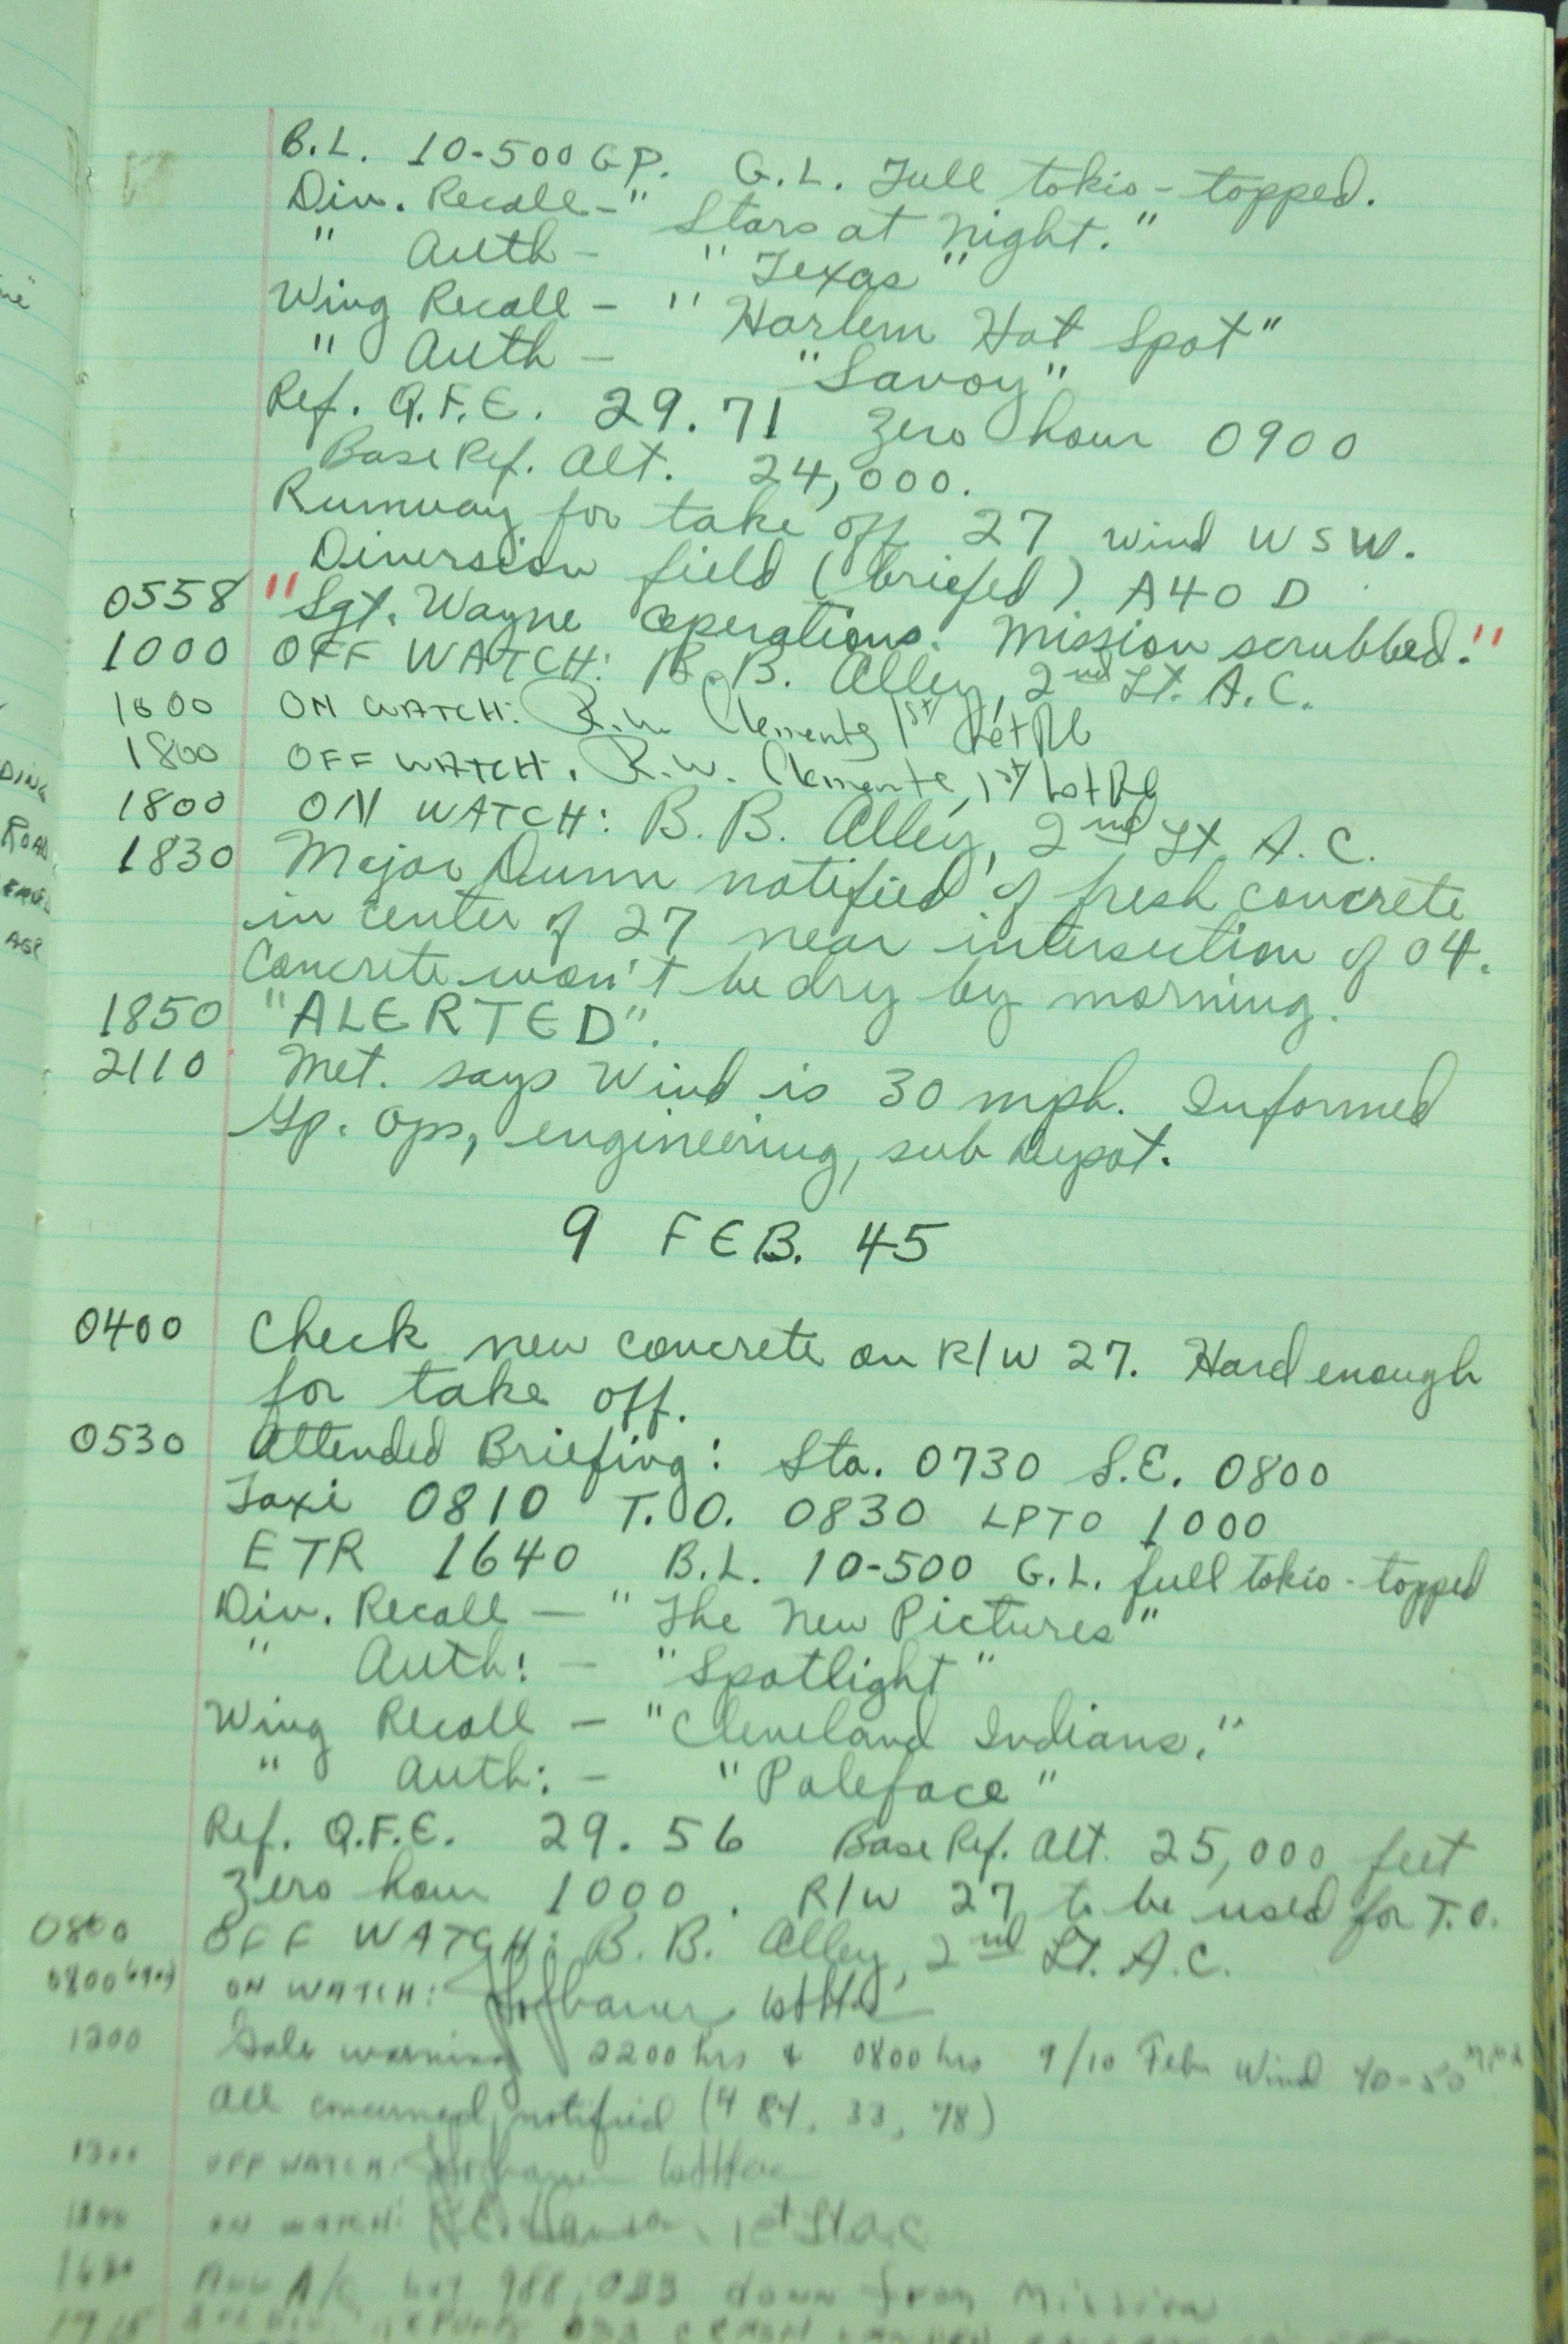 B.L. 10-500 GP. G.L. Full tokio - topped.
Div. Recall - "Stars at Night."
" Auth - "Texas"
Wing Recall - "Harlem Hot Spot"
" Auth - "Savoy"
Ref. Q.F.E. 29.71 Zero hour 0900
Base Ref. Alt. 24,000.
Runway for take off 27 wind WSW.
Diversion field (briefed) A40 D
0558 "Sgt. Wayne operations. Mission scrubbed."
1000 OFF WATCH: B. B. Alley, 2nd Lt. A.C.
1000 ON WATCH: R.W. Clements 1st
1800 OFF WATCH. R.W. Clements, 1st
1800 ON WATCH: B. B. Alley, 2nd Lt. A.C.
1830 Major Dunn notified of fresh concrete
in center of 27 near intersection of 04.
Concrete won't be dry by morning.
1850 "ALERTED".
2110 Met. says Wind is 30 mph. Informed
Gp. Ops, engineering, sub depot.
9 FEB. 45
0400 Check new concrete on R/W 27. Hard enough
for take off.
0530 Attended Briefing: Sta. 0730 S.E. 0800
Taxi 0810 T.O. 0830 LPTO 1000
ETR 1640 B.L. 10-500 G.L. full tokio - topped
Div. Recall - "The New Pictures"
" Auth: - "Spotlight"
Wing Recall - "Cleveland Indians."
" Auth: - "Paleface"
Ref. Q.F.E. 29.56 Base Ref. Alt. 25,000 feet
Zero hour 1000. R/W 27 to be used for T.O.
0800 OFF WATCH: B. B. Alley, 2nd Lt. A.C.
0800 ON WATCH:
1200 Gale warning 2200 hrs & 0800 hrs 9/10 Feb Wind 40-50 mph
All concerned notified (4 84, 33, 78)
1300 OFF WATCH:
ON WATCH: 1st Lt A.C
A/C 988, 033 down from Mission